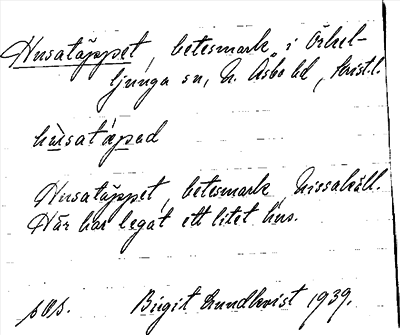 Husatäppet, betesmark i Örkel-
ljunga sn, N. Åsbo hd, Krist.l.
hùsatápad
Husatäppet, betesmark, Nissakäll.
Här har legat ett litet hus.
Birgit Lundkvist 1939.